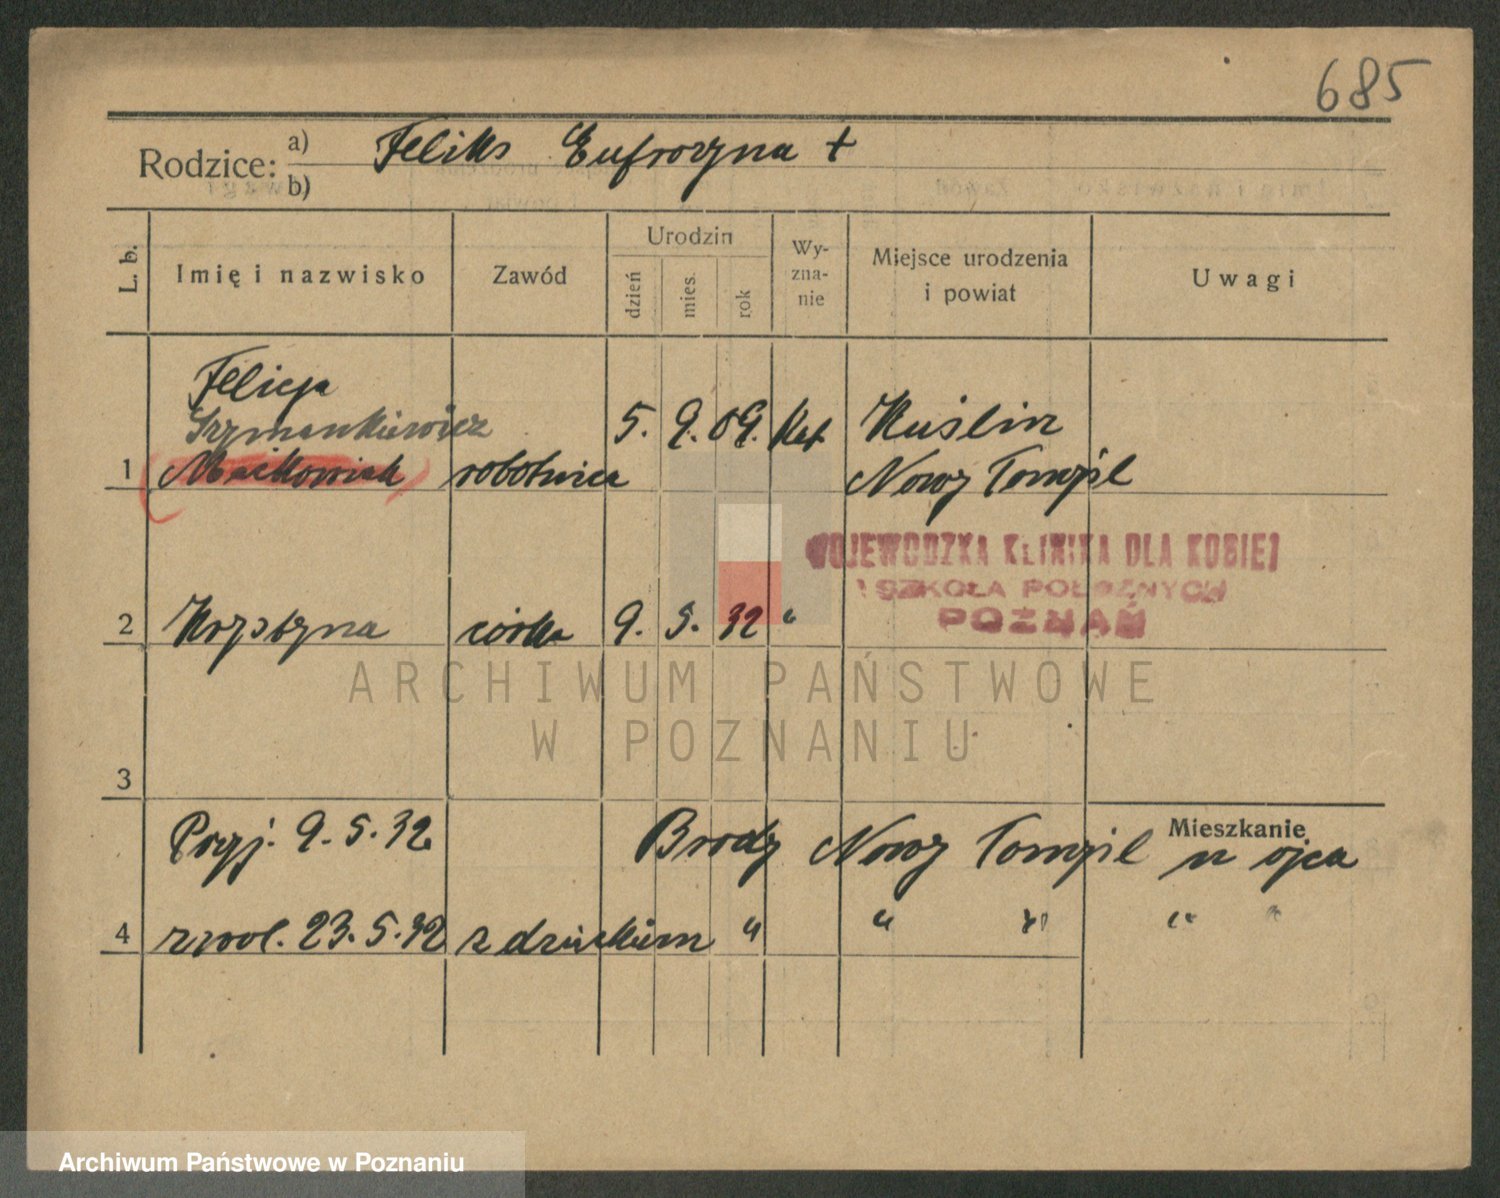 685
Rodzice: a) b)
Feliks Eufrozyna +
L. b.
Imię i nazwisko
Zawód
Urodzin
dzień
mies.
rok
Wy-
zna-
nie
Miejsce urodzenia
i powiat
Uwagi
Felicja
Szymankiewicz
1 Maćkowiak robotnica 5. 9. 09. Kat Kuślin
Nowy Tomyśl
WOJEWÓDZKA KLINIKA DLA KOBIET
I SZKOŁA POŁOŻNYCH
POZNAŃ
2 Krystyna córka 9. 5. 32 "
ARCHIWUM PAŃSTWOWE
W POZNANIU
3
Mieszkanie
Przyj. 9.5.32 Brody Nowy Tomyśl u ojca
4 zwol. 23.5.32 z dzieckiem " " " " "
Archiwum Państwowe w Poznaniu